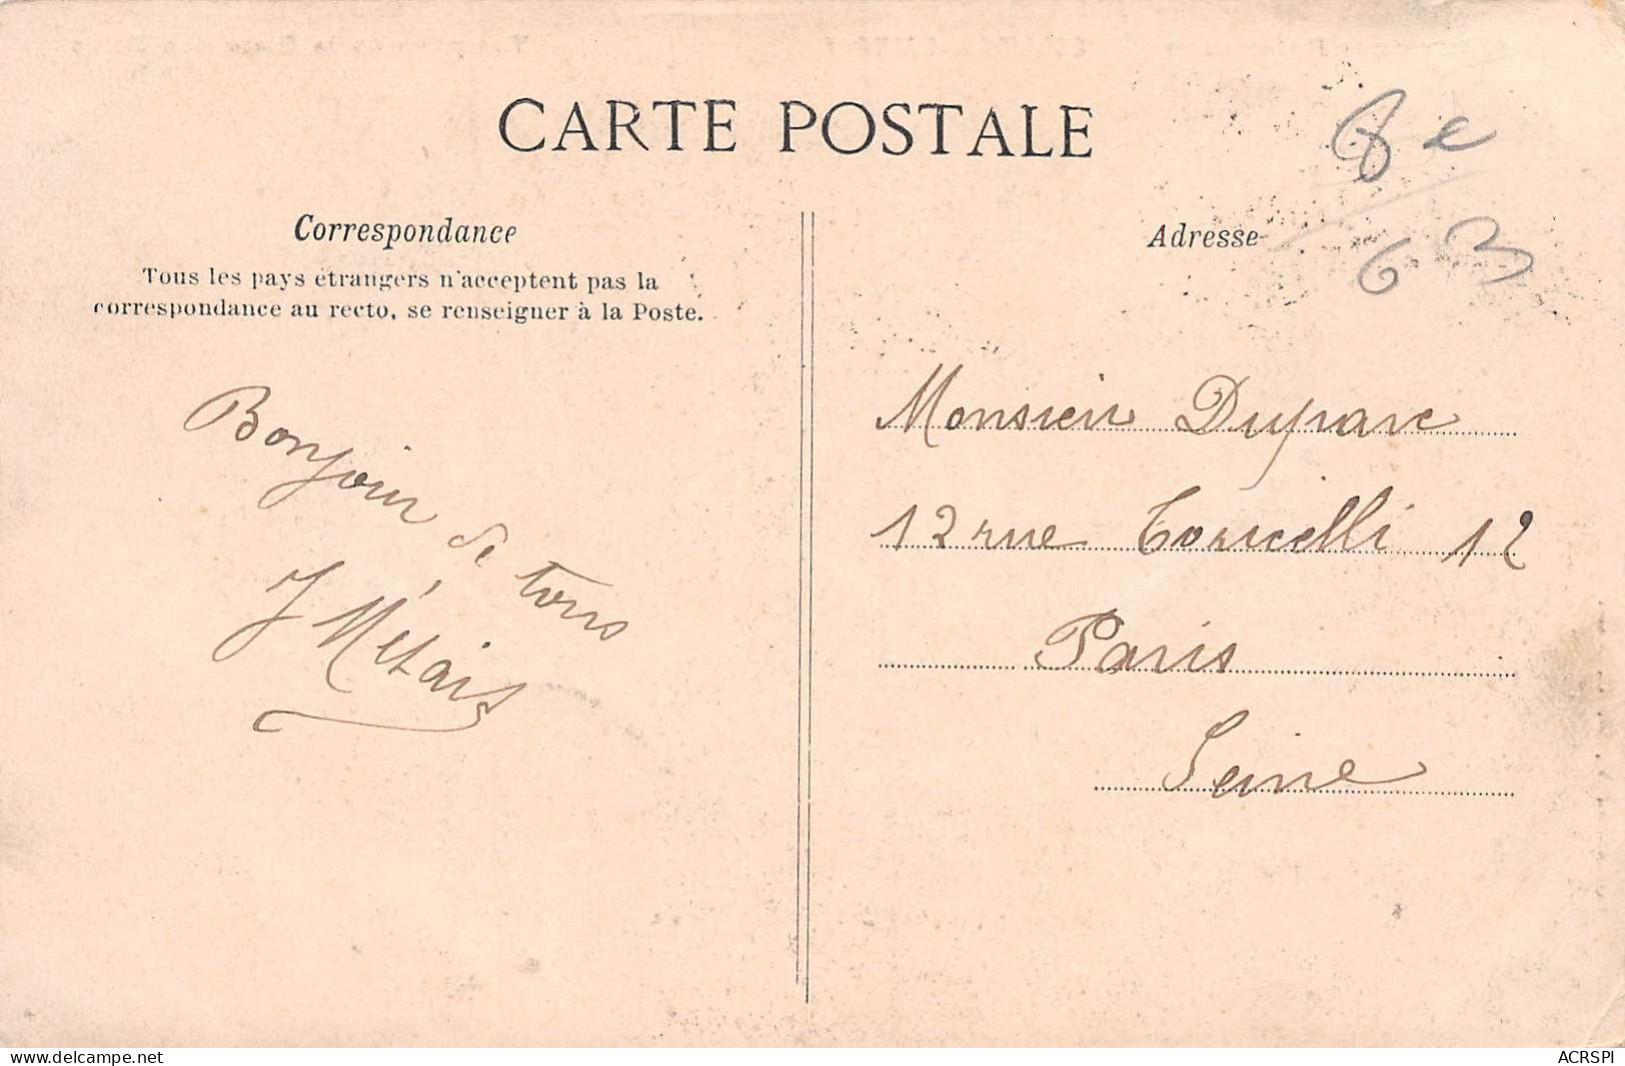 CARTE POSTALE
6 e
63
Correspondance
Tous les pays étrangers n'acceptent pas la
correspondance au recto, se renseigner à la Poste.
Bonjour de tous
J Métais
Adresse
Monsieur Duparc
12 rue Toricelli 12
Paris
Seine
www.delcampe.net
ACRSPI